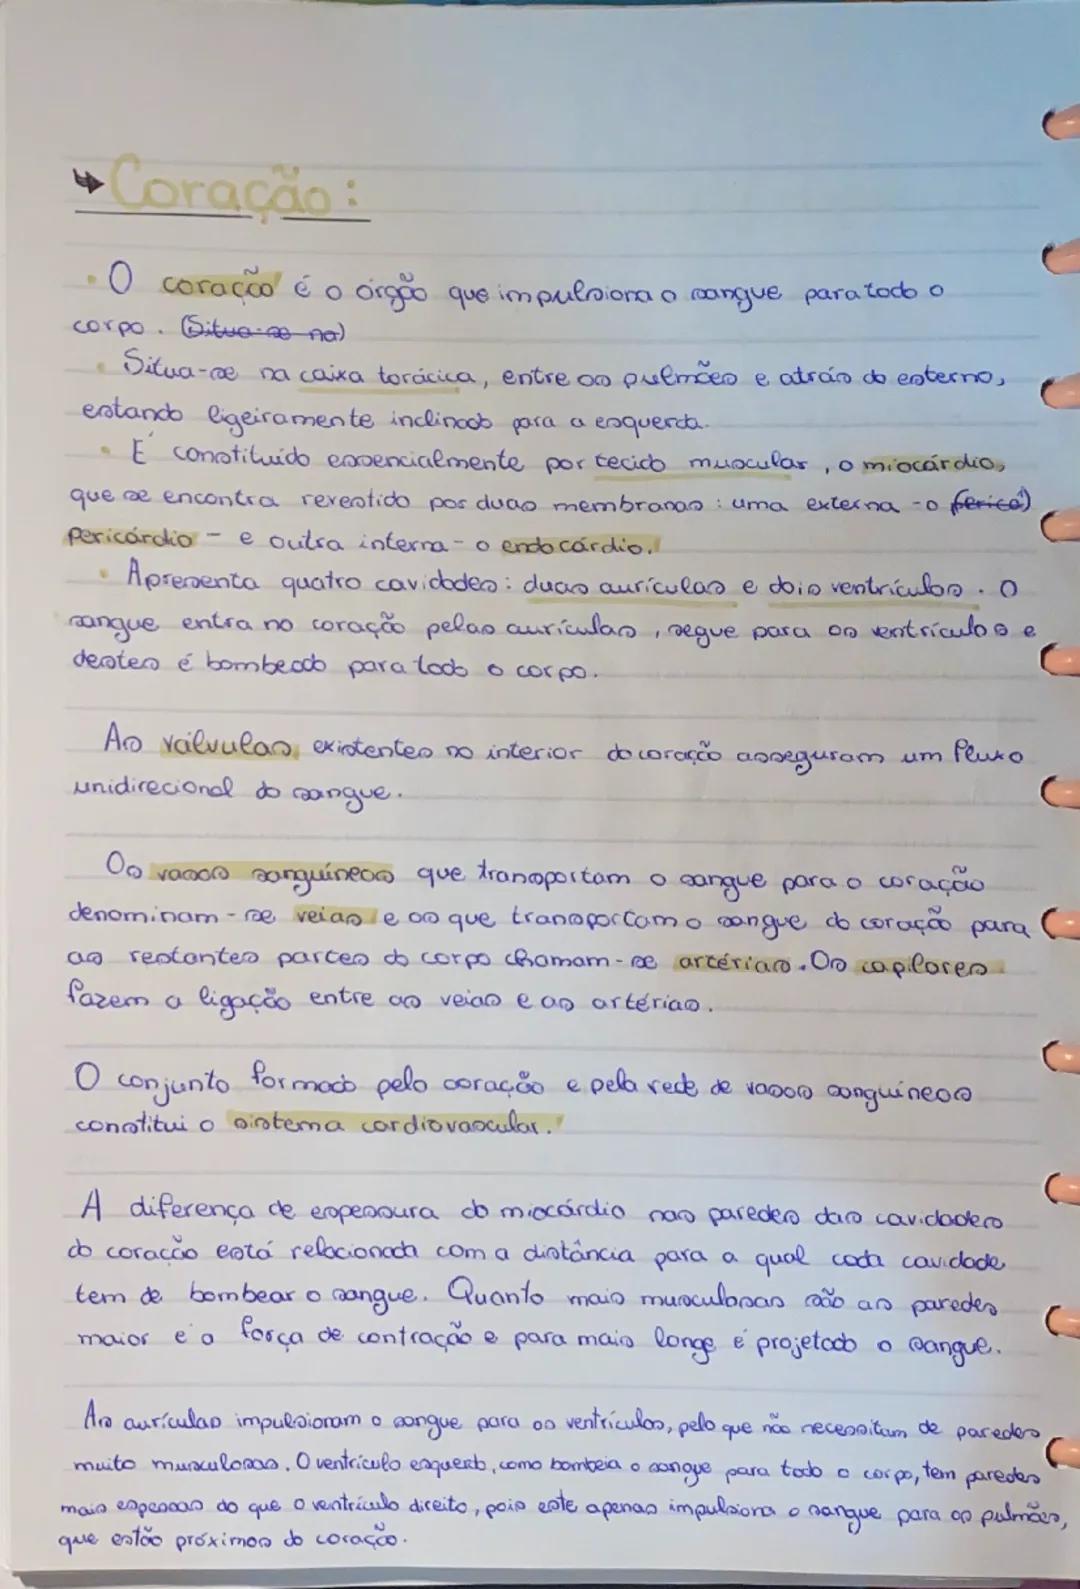 ↳ Coração:
• O coração é o órgão que impulsiona o sangue para todo o
corpo. (Situa-se na)
• Situa-se na caixa torácica, entre os pulmões e atrás do esterno,
estando ligeiramente inclinado para a esquerda.
• É constituído essencialmente por tecido muscular, o miocárdio,
que se encontra revestido por duas membranas: uma externa - o (pericá)
pericárdio - e outra interna - o endocárdio.
• Apresenta quatro cavidades: duas aurículas e dois ventrículos. O
sangue entra no coração pelas aurículas, segue para os ventrículos e
destes é bombeado para todo o corpo.
As válvulas existentes no interior do coração asseguram um fluxo
unidirecional do sangue.
Os vasos sanguíneos que transportam o sangue para o coração
denominam-se veias e os que transportam o sangue do coração para
as restantes partes do corpo chamam-se artérias. Os capilares
fazem a ligação entre as veias e as artérias.
O conjunto formado pelo coração e pela rede de vasos sanguíneos
constitui o sistema cardiovascular.
A diferença de espessura do miocárdio nas paredes das cavidades
do coração está relacionada com a distância para a qual cada cavidade
tem de bombear o sangue. Quanto mais musculosas são as paredes
maior é a força de contração e para mais longe é projetado o sangue.
As aurículas impulsionam o sangue para os ventrículos, pelo que não necessitam de paredes
muito musculosas. O ventrículo esquerdo, como bombeia o sangue para todo o corpo, tem paredes
mais espessas do que o ventrículo direito, pois este apenas impulsiona o sangue para os pulmões,
que estão próximos do coração.